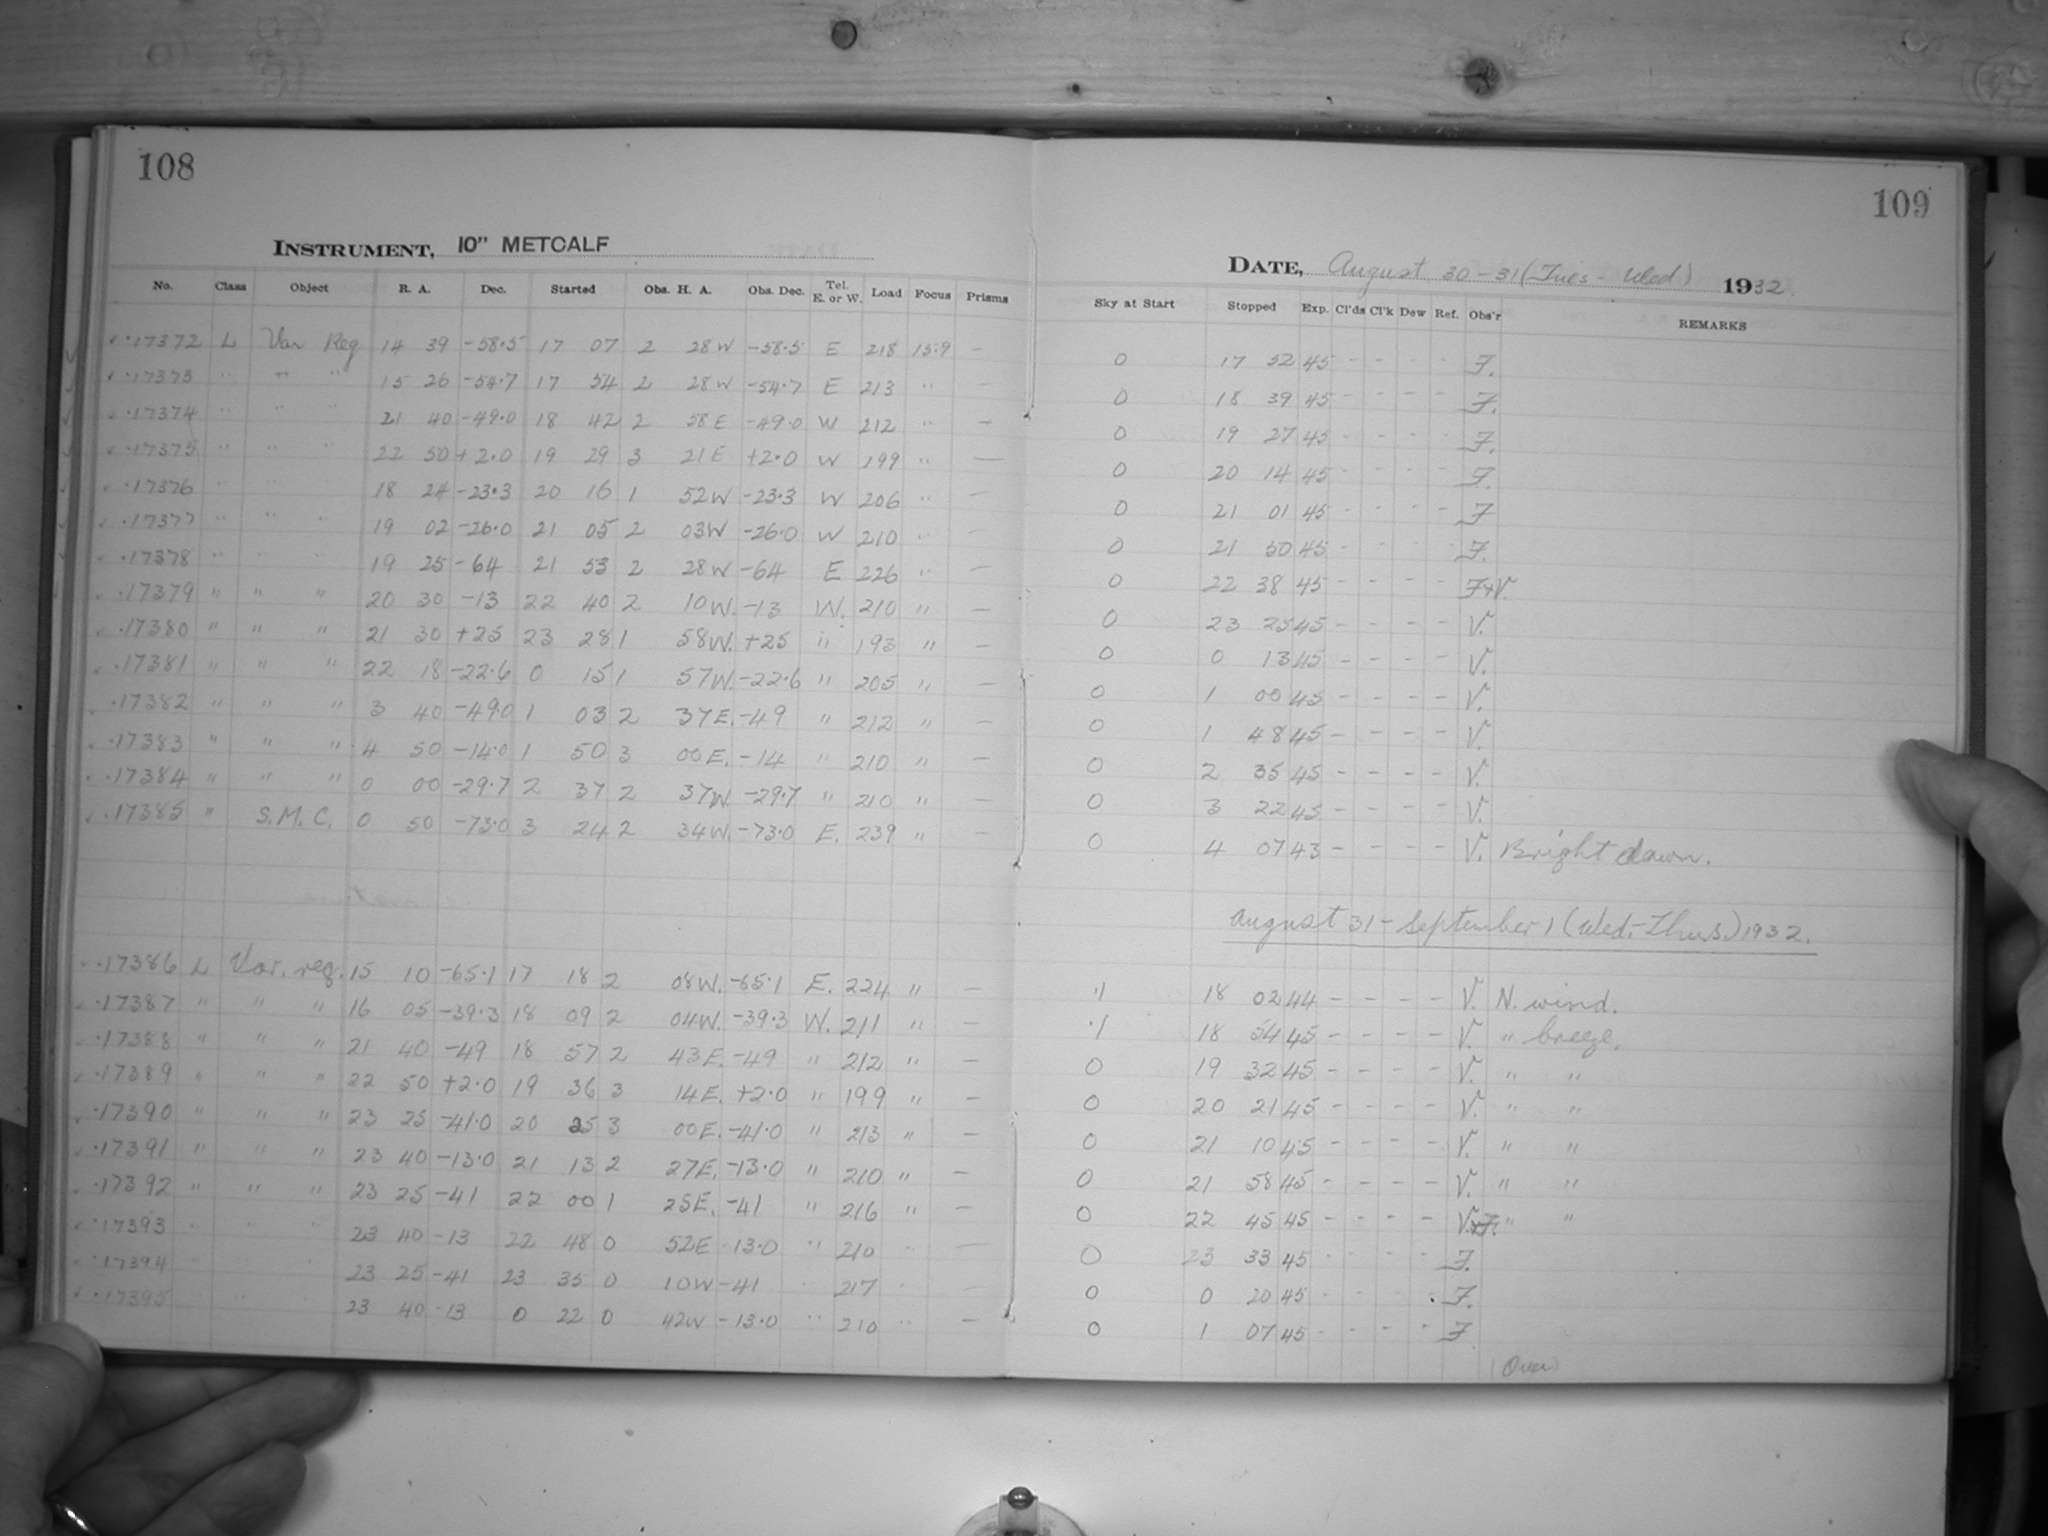 108
109
INSTRUMENT, 10" METCALF
DATE, August 30-31 (Tues - Wed) 1932
No. Class Object R. A. Dec. Started Obs. H. A. Obs. Dec. Tel. E. or W. Load Focus Prisms Sky at Start Stopped Exp. Cl'ds Cl'k Dew Ref. Obs'r REMARKS
17372 L Var Reg 14 39 -58.5 17 07 2 28W -58.5 E 218 15.9 - 0 17 52 45 - - - - F.
17373 " " " 15 26 -54.7 17 54 2 28W -54.7 E 213 " - 0 18 39 45 - - - - F.
17374 " " " 21 40 -49.0 18 42 2 58E -49.0 W 212 " - 0 19 27 45 - - - - F.
17375 " " " 22 50 +2.0 19 29 3 21E +2.0 W 199 " - 0 20 14 45 - - - - F.
17376 " " " 18 24 -23.3 20 16 1 52W -23.3 W 206 " - 0 21 01 45 - - - - F
17377 " " " 19 02 -26.0 21 05 2 03W -26.0 W 210 " - 0 21 50 45 - - - - F.
17378 " " " 19 25 -64 21 53 2 28W -64 E 226 " - 0 22 38 45 - - - - F+V.
17379 " " " 20 30 -13 22 40 2 10W. -13 W. 210 " - 0 23 25 45 - - - - V.
17380 " " " 21 30 +25 23 28 1 58W. +25 " 193 " - 0 0 13 45 - - - - V.
17381 " " " 22 18 -22.6 0 15 1 57W. -22.6 " 205 " - 0 1 00 45 - - - - V.
17382 " " " 3 40 -49.0 1 03 2 37E. -49 " 212 " - 0 1 48 45 - - - - V.
17383 " " " 4 50 -14.0 1 50 3 00E. -14 " 210 " - 0 2 35 45 - - - - V.
17384 " " " 0 00 -29.7 2 37 2 37W. -29.7 " 210 " - 0 3 22 45 - - - - V.
17385 " S.M.C. 0 50 -73.0 3 24 2 34W. -73.0 E. 239 " - 0 4 07 43 - - - - V. Bright dawn.
August 31 - September 1 (Wed.-Thurs.) 1932.
17386 L Var. reg. 15 10 -65.1 17 18 2 08W. -65.1 E. 224 " - .1 18 02 44 - - - - V. N. wind.
17387 " " " 16 05 -39.3 18 09 2 04W. -39.3 W. 211 " - .1 18 54 45 - - - - V. " breeze.
17388 " " " 21 40 -49 18 57 2 43E. -49 " 212 " - 0 19 32 45 - - - - V. " "
17389 " " " 22 50 +2.0 19 36 3 14E. +2.0 " 199 " - 0 20 21 45 - - - - V. " "
17390 " " " 23 25 -41.0 20 25 3 00E. -41.0 " 213 " - 0 21 10 45 - - - - V. " "
17391 " " " 23 40 -13.0 21 13 2 27E. -13.0 " 210 " - 0 21 58 45 - - - - V. " "
17392 " " " 23 25 -41 22 00 1 25E. -41 " 216 " - 0 22 45 45 - - - - V. " "
17393 " " " 23 40 -13 22 48 0 52E -13.0 " 210 " - 0 23 33 45 - - - - F.
17394 " " " 23 25 -41 23 35 0 10W -41 " 217 " - 0 0 20 45 - - - - F.
17395 " " " 23 40 -13 0 22 0 42W -13.0 " 210 " - 0 1 07 45 - - - - F
(Over)